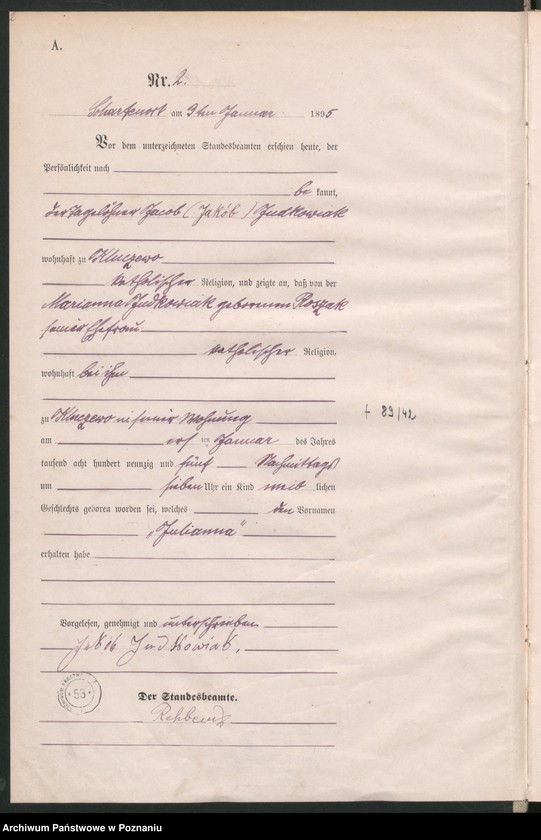 A.
Nr. 2.
Scharfenort am 9ten Januar 1895
Vor dem unterzeichneten Standesbeamten erschien heute, der
Persönlichkeit nach
be kannt,
der Tagelöhner Jacob (Jakób) Judkowiak
wohnhaft zu Kluczewo
katholischer Religion, und zeigte an, daß von der
Marianna Judkowiak geborenen Roszak
seiner Ehefrau
katholischer Religion,
wohnhaft bei ihm
zu Kluczewo in seiner Wohnung
† 89/42
am ersten Januar des Jahres
tausend acht hundert neunzig und fünf Nachmittags
um sieben Uhr ein Kind weib lichen
Geschlechts geboren worden sei, welches den Vornamen
„Julianna"
erhalten habe
Vorgelesen, genehmigt und unterschrieben
Jakób Judkowiak,
53
Der Standesbeamte.
Archiwum Państwowe w Poznaniu